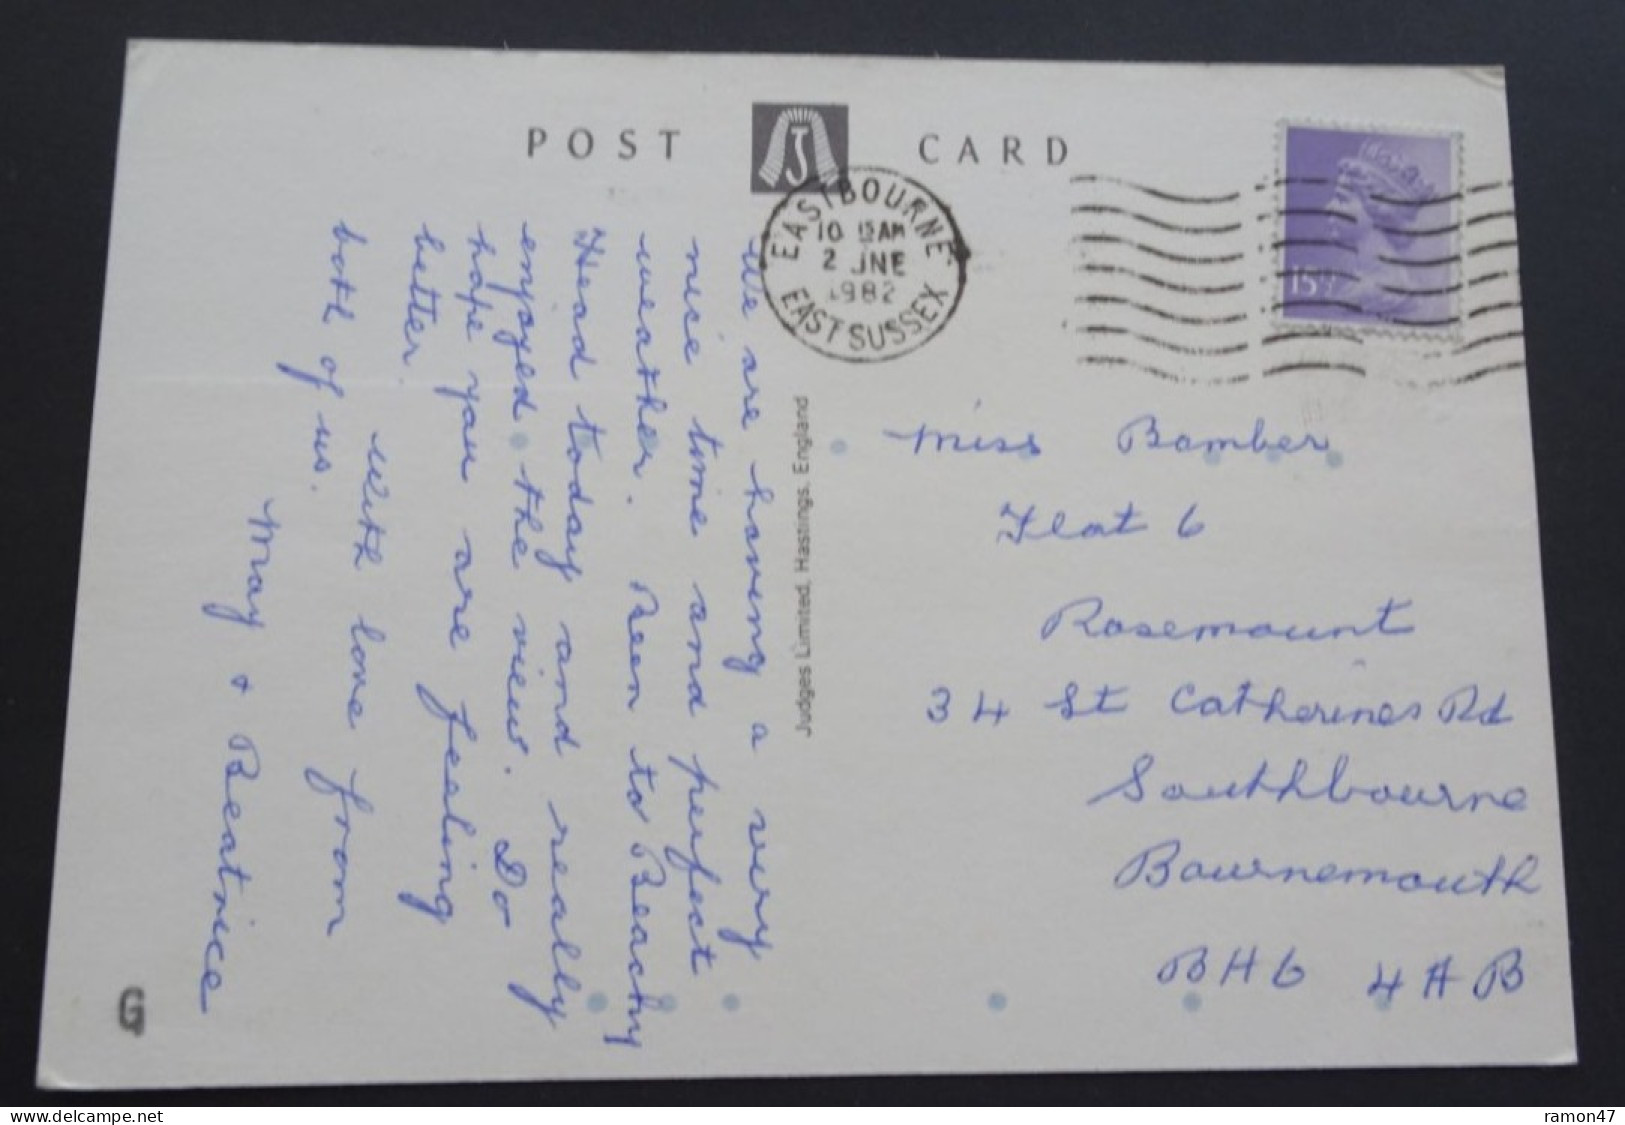 POST CARD
J
EASTBOURNE
10 15AM
2 JNE
1982
EAST SUSSEX
15½P
We are having a very
nice time and perfect
weather. Been to Beachy
Head today and really
enjoyed the view. Do
hope you are feeling
better.
With love from
both of us.
May + Beatrice
Judges Limited, Hastings, England
Miss Bamber
Flat 6
Rosemount
34 St Catherines Rd
Southbourne
Bournemouth
BH6 4AB
G
www.delcampe.net
ramon47